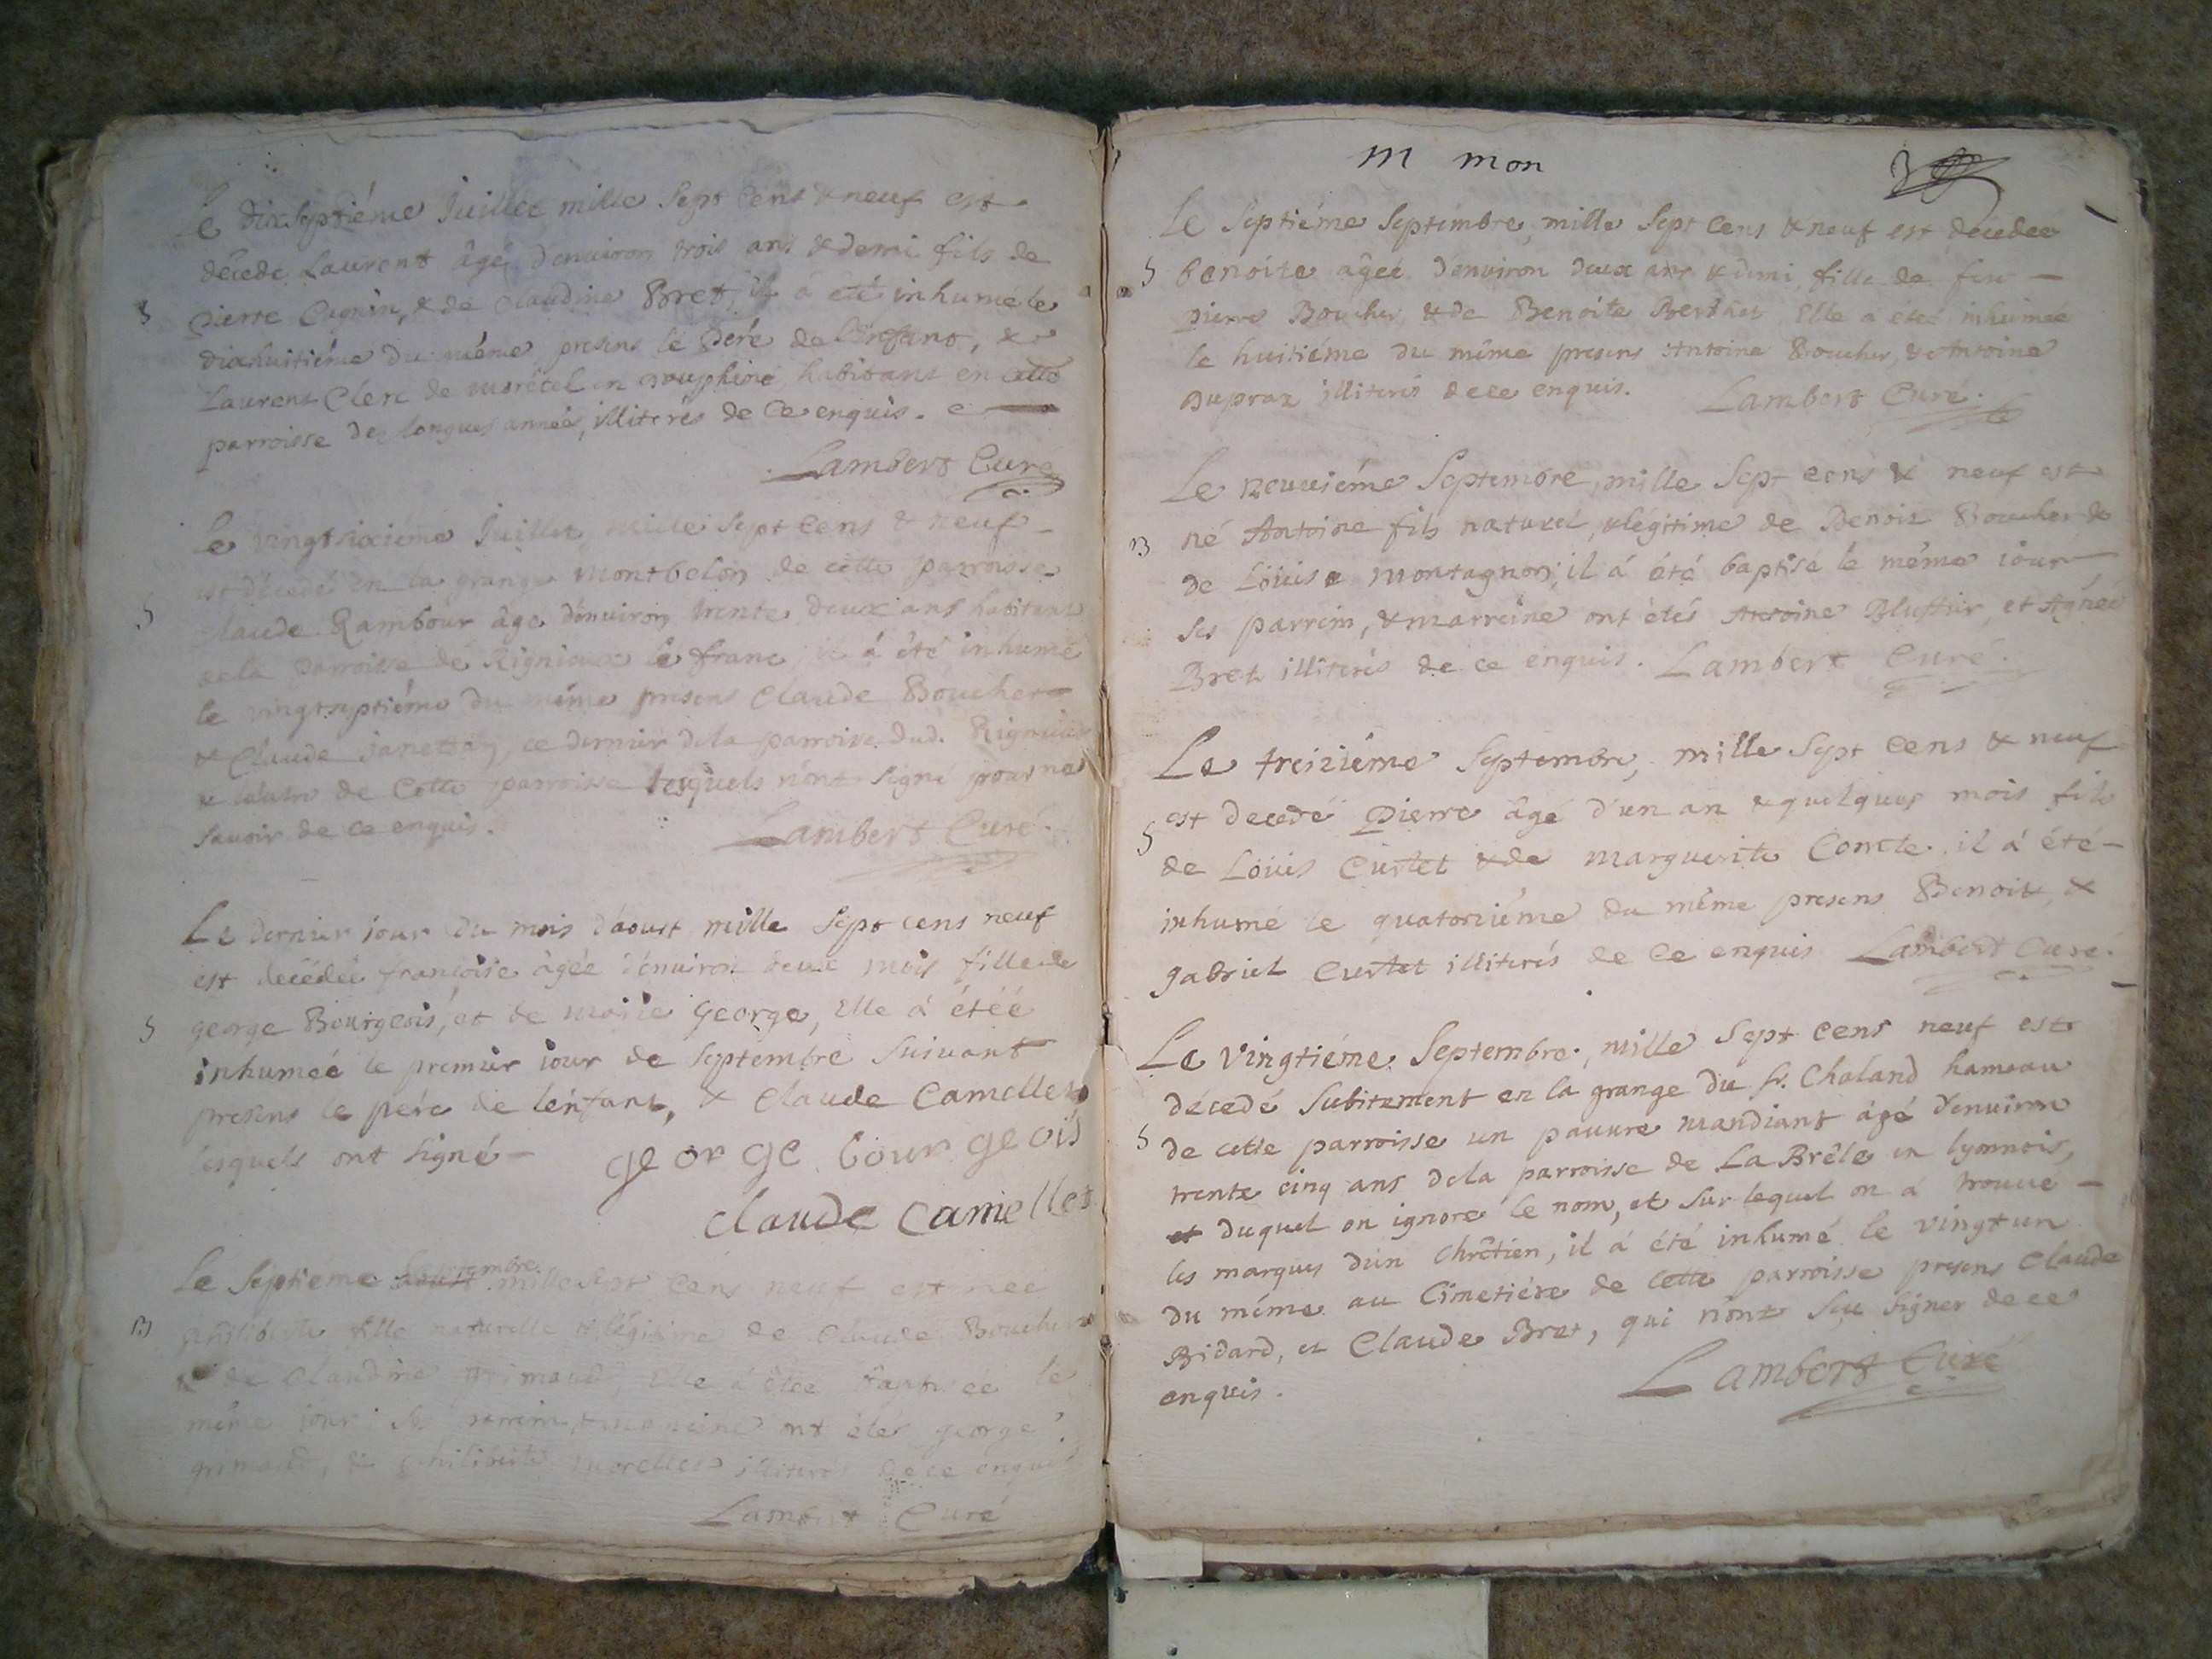 Le dixseptiéme Juillet mille Sept Cens & neuf est
décedé Laurent âgé d'enuiron trois ans & demi fils de
S pierre Cagnin, & de Claudine Bret, il á été inhumé le
dixhuitiéme du même presens le Pére de l'enfant, &
Laurent Clerc de morêtel en Dauphiné habitant en cette
parroisse de longues année, illiterés de Ce enquis.
Lambert Curé
Le vingtsixiéme Juillet mille Sept Cens & neuf
est décedé en la grange montbelon de cette parroisse
S Claude Rambour âge d'enuiron trente deux ans habitant
de la parroisse de Rignieux le franc, il á été inhumé
le vingtseptiéme du même presens Claude Boucher
& Claude Janetton, ce dernier dela parroisse dud. Rignieux
& l'autre de Cette parroisse lesquels n'ont Signé pour ne
Savoir de ce enquis. Lambert Curé.
Le dernier iour du mois d'aoust mille Sept cens neuf
est decédée françoise âgée d'enuiron deux mois fille de
S george Bourgeois, et de marie George, Elle á étéé
inhuméé le premier iour de Septembre Suivant
presens le pére de l'enfant, & Claude Camellet
lesquels ont Signé
george bourgeois
claude camellet
Le Septiéme aoust Septembre mille Sept Cens neuf est néé
B philiberte fille naturelle & légitime de Claude Boucher
& de Claudine grimaud, Elle á étéé baptisée le
même iour Ses parrein, & marreine ont étés george
grimaud, & philiberte morellet illiterés de ce enquis
Lambert Curé
m mon
Le Septiéme Septembre, mille Sept Cens & neuf est décedée
S benoite âgéé d'environ deux ans & demi, fille de feu
pierre Boucher, & de Benoite Berthet, Elle a étéé inhumée
le huitiéme du même presens Antoine Boucher, & Antoine
Dupraz illiterés de ce enquis. Lambert Curé.
Le Neuuiéme Septembre, mille Sept cens & neuf est
B né Antoine fils naturel, & légitime de Benoit Boucher &
de Loüise montagnon; il á été baptisé le même iour
Ses parrein, & marreine ont étés Antoine Bluffier, et Agnée
Bret illiterés de ce enquis. Lambert Curé.
Le treiziéme Septembre, mille Sept Cens & neuf
S est decedé pierre âgé d'un an & quelques mois fils
de Loüis Curtet & de marguerite Comte. il á été
inhumé le quatorziéme du même presens Benoit, &
gabriel Curtet illiterés de Ce enquis Lambert Curé.
Le vingtiéme Septembre, mille Sept Cens neuf est
décedé Subitement en la grange du Sr. Chaland hameau
S de cette parroisse un pauure mandiant âgé d'enuiron
trente cinq ans dela parroisse de La Brêle en lyonnois,
et duquel on ignore le nom, et Sur lequel on á trouué
les marques d'un Chrêtien, il á été inhumé le vingt un
du même au Cimetiére de Cette parroisse presens Claude
Bidard, et Claude Bret, qui n'ont Sçu Signer de ce
enquis. Lambert Curé